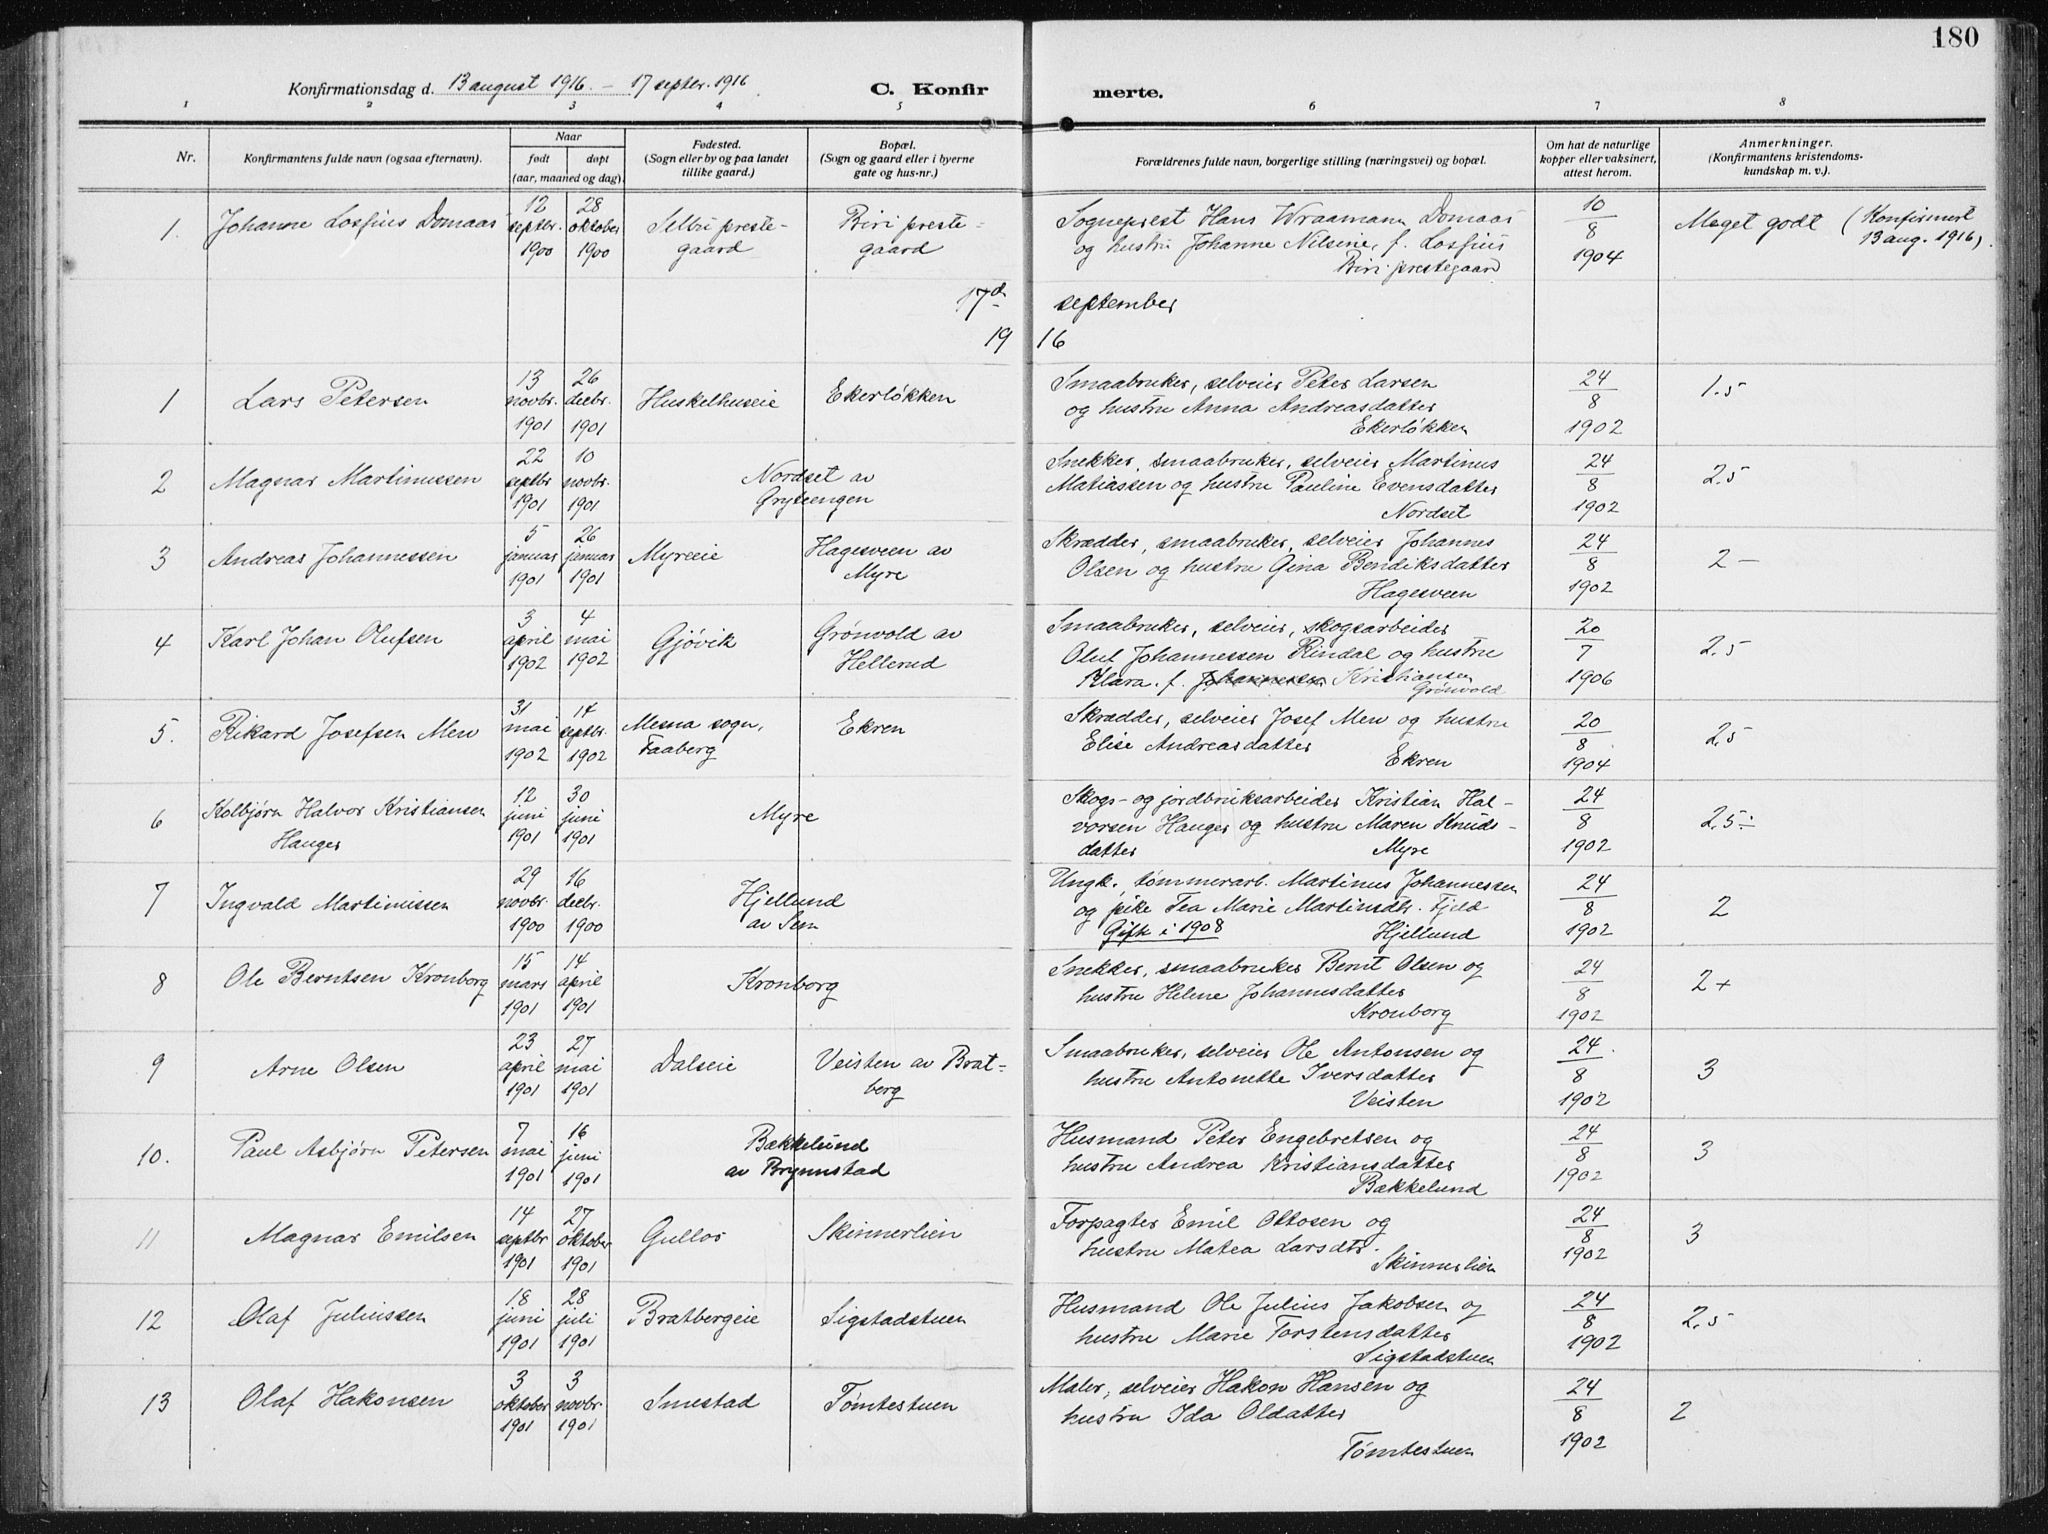 180
Konfirmationsdag d. 13 august 1916. – 17 septbr. 1916
C. Konfir
merte.
1 2 3 4 5 6 7 8
Nr.
Konfirmantens fulde navn (og saa efternavn).
Naar
født døpt
(aar, maaned og dag).
Fødested.
(Sogn eller by og paa landet
tillike gaard.)
Bopæl.
(Sogn og gaard eller i byerne
gate og hus-nr.)
Forældrenes fulde navn, borgerlige stilling (næringsvei) og bopæl.
Om hat de naturlige
kopper eller vaksinert,
attest herom.
Anmerkninger.
(Konfirmantens kristendoms-
kundskap m. v.).
1. Johanne Losfius Domaas
12 septbr. 1900
28 oktober 1900
Selbu preste-
gaard
Biri preste-
gaard
Sogneprest Hans Wraamann Domaas
og hustru Johanne Nilsine, f. Losfius
Biri prestegaard
10/8 1904
Meget godt (Konfirmert
13 aug. 1916).
17d september
1916
1 Lars Petersen
13 novbr. 1901
26 decbr. 1901
Huskelhuseie
Ekerløkken
Smaabruker, selveier Peter Larsen
og hustru Anna Andreasdatter
Ekerløkken
24/8 1902
1.5
2 Magnar Martinussen
22 septbr 1901
10 novbr. 1901
Nordset av
Gryteengen
Snekker, smaabruker, selveier Martinus
Matiassen og hustru Pauline Evensdatter
Nordset
24/8 1902
2.5
3 Andreas Johannessen
5 januar 1901
26 januar 1901
Myreeie
Hagesveen av
Myre
Skrædder, smaabruker, selveier Johannes
Olsen og hustru Gina Bendiksdatter
Hagesveen
24/8 1902
2 –
4 Karl Johan Olufsen
3 april 1902
4 mai 1902
Gjøvik
Grønvold av
Hellerud
Smaabruker, selveier, skogsarbeider
Oluf Johannessen Rindal og hustru
Klara. f. Johannessen Kristiansen
Grønvold
20/7 1906
2.5
5. Rikard Josefsen Men
31 mai 1902
14 septbr. 1902
Mesna sogn,
Faaberg
Ekren
Skrædder, selveier Josef Men og hustru
Elise Andreasdatter
Ekren
20/8 1904
2.5
6 Kolbjørn Halvor Kristiansen
Hanger
12 juni 1901
30 juni 1901
Myre
Skogs- og jordbruksarbeider Kristian Hal-
vorsen Hanger og hustru Maren Knuds-
datter
Myre
24/8 1902
2.5÷
7 Ingvald Martinissen
29 novbr. 1900
16 decbr. 1900
Hjellund
av Sem
Ungk. tømmerarb. Martinus Johannessen
og pike Tea Marie Martinsdtr. Fjeld
Gift i 1908
Hjellund
24/8 1902
2
8 Ole Berntsen Kronborg
15 mars 1901
14 april 1901
Kronborg
Snekker, smaabruker Bernt Olsen og
hustru Helene Johannesdatter
Kronborg
24/8 1902
2 +
9 Arne Olsen
23 april 1901
27 mai 1901
Dalseie
Veisten av Brat-
berg
Smaabruker, selveier Ole Antonsen og
hustru Antonette Iversdatter
Veisten
24/8 1902
3
10. Paul Asbjørn Petersen
7 mai 1901
16 juni 1901
Bækkelund
av Brynnstad
Husmand Peter Engebretsen og
hustru Andrea Kristiansdatter
Bækkelund
24/8 1902
3
11 Magnar Emilsen
14 septbr 1901
27 oktober 1901
Gullor
Skinnerlien
Forpagter Emil Ottosen og
hustru Matea Larsdtr.
Skinnerlien
24/8 1902
3
12 Olaf Juliussen
18 juni 1901
28 juli 1901
Bratbergeie
Sigstadstuen
Husmand Ole Julius Jakobsen og
hustru Marie Torstensdatter
Sigstadstuen
24/8 1902
2.5
13 Olaf Hakonsen
3 oktober 1901
3 novbr. 1901
Smestad
Tømtestuen
Maler, selveier Hakon Hansen og
hustru Ida Oldatter
Tømtestuen
24/8 1902
2